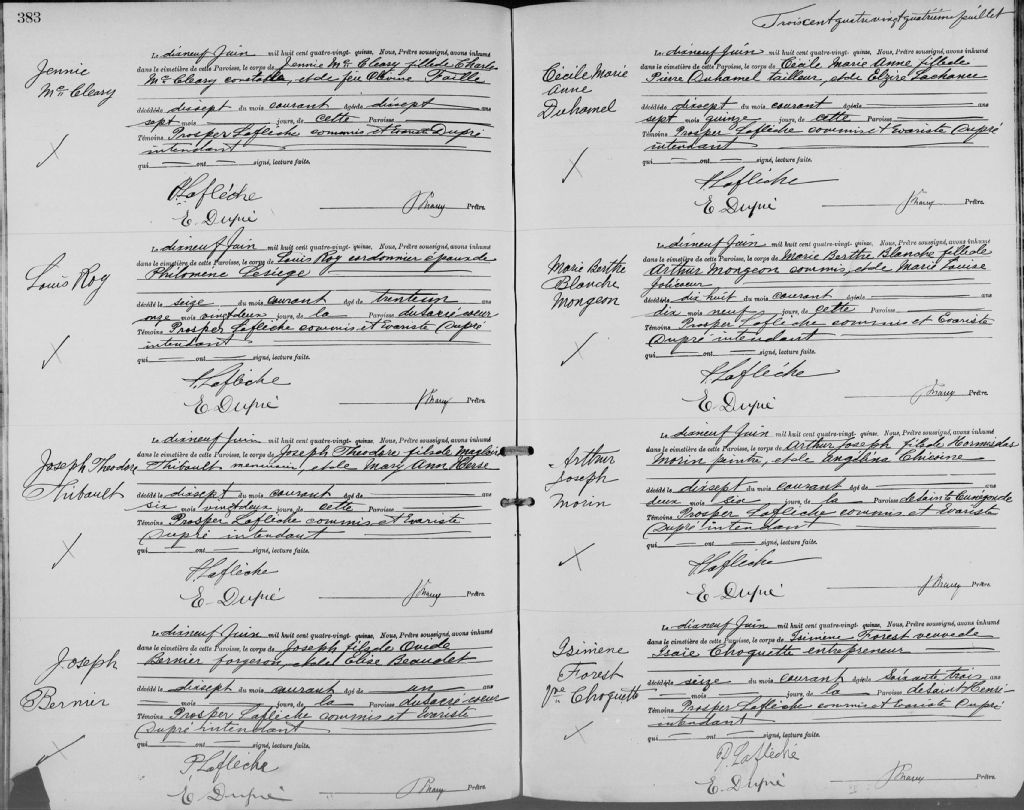 383
Jennie
Mc Cleary
Le dixneuf Juin mil huit cent quatre-vingt-quinze, Nous, Prêtre soussigné, avons inhumé
dans le cimetière de cette Paroisse, le corps de Jennie Mc Cleary fille de Charles
Mc Cleary constable, et de feu Faille
décédée dixsept du mois courant âgée dixsept ans
sept mois jours, de cette Paroisse
Témoins Prosper Laflèche commis et Dupré
intendant
qui ont signé, lecture faite.
P. Laflèche
E. Dupré
Prêtre.
Louis Roy
Le dixneuf Juin mil huit cent quatre-vingt-quinze, Nous, Prêtre soussigné, avons inhumé
dans le cimetière de cette Paroisse, le corps de Louis Roy cordonnier époux de
Philomène Lesiege
décédé le seize du mois courant âgé de trenteun ans
onze mois vingtdeux jours, de la Paroisse du Sacré coeur
Témoins Prosper Laflèche commis et Evariste Dupré
intendant
qui ont signé, lecture faite.
P. Laflèche
E. Dupré
Prêtre.
Joseph Theodore
Thibault
Le dixneuf Juin mil huit cent quatre-vingt-quinze, Nous, Prêtre soussigné, avons inhumé
dans le cimetière de cette Paroisse, le corps de Joseph Theodore fils de
Thibault menuisier, et de Mary Ann
décédé le dixsept du mois courant âgé de
six mois vingtdeux jours, de cette Paroisse
Témoins Prosper Laflèche commis et Evariste
Dupré intendant
qui ont signé, lecture faite.
P. Laflèche
E. Dupré
Prêtre.
Joseph
Bernier
Le dixneuf Juin mil huit cent quatre-vingt-quinze, Nous, Prêtre soussigné, avons inhumé
dans le cimetière de cette Paroisse, le corps de Joseph fils de Ovide
Bernier forgeron, et de Elise Beaudet
décédé le dixsept du mois courant âgé de un ans
mois jours, de la Paroisse du Sacré-coeur
Témoins Prosper Laflèche commis et Evariste
Dupré intendant
qui ont signé, lecture faite.
P. Laflèche
E. Dupré
Prêtre.
Troiscentquatrevingtquatrième feuillet
Cécile Marie
Anne
Duhamel
Le dixneuf Juin mil huit cent quatre-vingt-quinze, Nous, Prêtre soussigné, avons inhumé
dans le cimetière de cette Paroisse, le corps de Cécile Marie Anne fille de
Pierre Duhamel tailleur, et de Elzire Lachance
décédée dixsept du mois courant âgée ans
sept mois quinze jours, de cette Paroisse
Témoins Prosper Laflèche commis & Evariste Dupré
intendant
qui ont signé, lecture faite.
P. Laflèche
E. Dupré
Prêtre.
Marie Berthe
Blanche
Mongeon
Le dixneuf Juin mil huit cent quatre-vingt-quinze, Nous, Prêtre soussigné, avons inhumé
dans le cimetière de cette Paroisse, le corps de Marie Berthe Blanche fille de
Arthur Mongeon commis, et de Marie Louise
Jolicoeur
décédée dix huit du mois courant âgée ans
dix mois neuf jours, de cette Paroisse
Témoins Prosper Laflèche commis et Evariste
Dupré intendant
qui ont signé, lecture faite.
P. Laflèche
E. Dupré
Prêtre.
Arthur
Joseph
Morin
Le dixneuf Juin mil huit cent quatre-vingt-quinze, Nous, Prêtre soussigné, avons inhumé
dans le cimetière de cette Paroisse, le corps de Arthur Joseph fils de Hormisdas
Morin peintre, et de Angélina Chicoine
décédé le dixsept du mois courant âgé de ans
deux mois six jours, de la Paroisse de Sainte Cunégonde
Témoins Prosper Laflèche commis et Evariste
Dupré intendant
qui ont signé, lecture faite.
P. Laflèche
E. Dupré
Prêtre.
Isimène
Forest
Vve Choquette
Le dixneuf Juin mil huit cent quatre-vingt-quinze, Nous, Prêtre soussigné, avons inhumé
dans le cimetière de cette Paroisse, le corps de Isimène Forest veuve de
Isaïe Choquette entrepreneur
décédée seize du mois courant âgée Soixante trois ans
mois jours, de la Paroisse de Saint Henri
Témoins Prosper Laflèche commis et Evariste Dupré
intendant
qui ont signé, lecture faite.
P. Laflèche
E. Dupré
Prêtre.